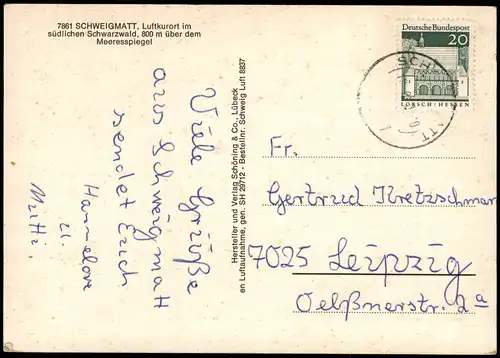 7861 SCHWEIGMATT, Luftkurort im
südlichen Schwarzwald, 800 m über dem
Meeresspiegel
Viele Grüße
aus Schweigmatt
sendet Euch
Hannelore
u.
Mutti.
Hersteller und Verlag Schöning & Co., Lübeck
en Luftaufnahme, gen. SH 29712 - Bestellnr. Schweig Luft 8837
Deutsche Bundespost
20
LORSCH/HESSEN
Fr.
Gertrud Kretzschmar
7025 Leipzig
Oelßnerstr. 2a